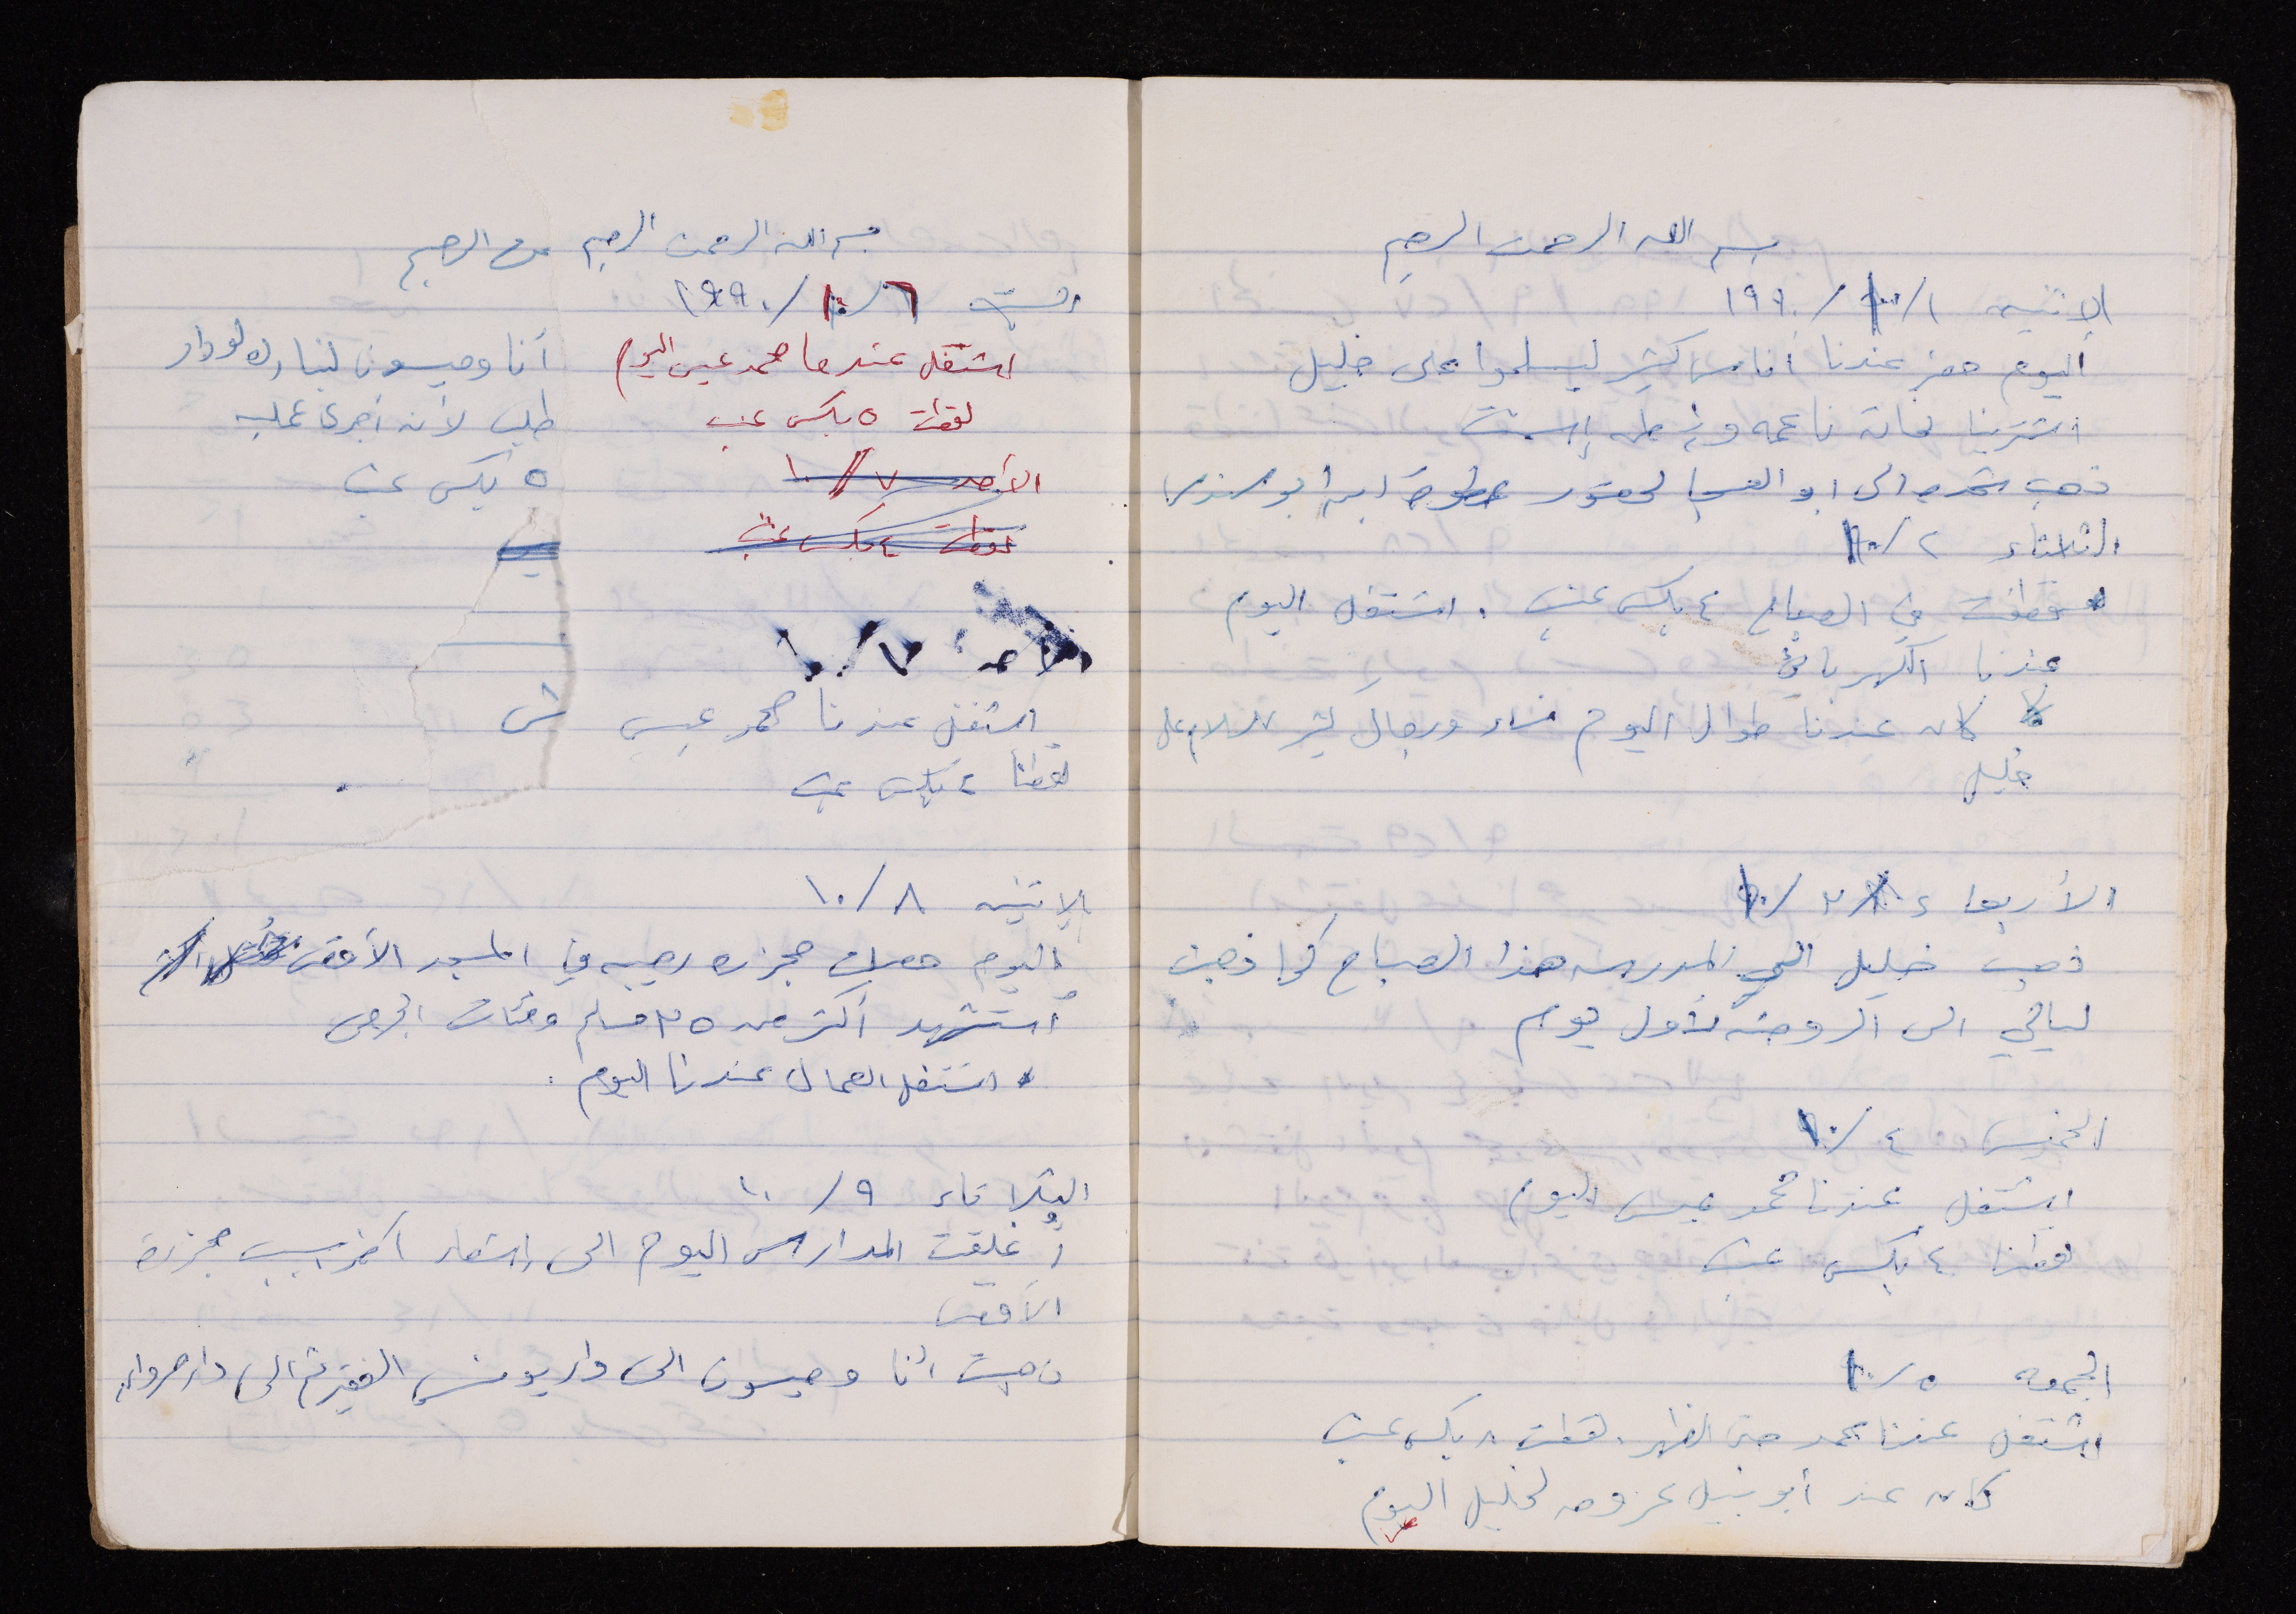 بسم الله الرحمن الرحيم
الاثنين ١/١٠/١٩٩٠
اليوم حضر عندنا أناس كثير ليسلموا على خليل
اشترينا نحاته ناعمه و
ذهب الى ابو لحضور ابن ابو
الثلاثاء ٢/١٠
قطفت في الصباح ٤ بكس عنب . اشتغل اليوم
عندنا الكهربائي
كان عندنا طوال اليوم نساء ورجال كثير للسلام على
خليل
الأربعاء ٣/١٠
ذهب خليل الى المدرسه هذا الصباح كما ذهبت
ليالي الى الروضه لأول يوم
الخميس ٤/١٠
اشتغل عندنا محمد عيسى اليوم
لقطنا ٤ بكس عنب
الجمعه ٥/١٠
اشتغل عندنا محمد حتى الظهر . لقطت ٨ بكس عنب
كان عند أبو نبيل عزومه لخليل اليوم
بسم الله الرحمن الرحيم من الرحيم
السبت ٦/١٠/١٩٩٠
اشتغل عندنا محمد عيسى اليوم أنا وميسون
لقطت ٥ بكس عنب لأنه أجرى عمليه
الأحد ٧/١٠ ٥ بكس عنب
لقطت ٤ بكس عنب
الأحد ٧/١٠
اشتغل عندنا محمد عيسى
لقطنا ٤ بكس عنب
الاثنين ٨/١٠
اليوم حصلت مجزره رهيبه في المسجد الأقصى
استشهد أكثر من ٢٥ مسلم ومئات الجرحى
اشتغل العمال عندنا اليوم .
الثلاثاء ٩/١٠
أغلقت المدارس اليوم الى إشعار آخر بسبب مجزرة
الأقصى
ذهبت أنا وميسون الى دار يونس الفقير ثم الى دار